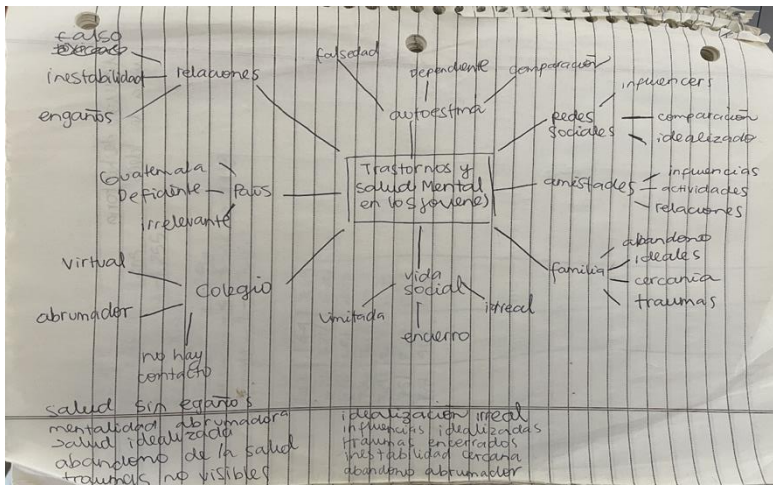 falso
inestabilidad
engaños
relaciones
falsedad
dependiente
comparación
autoestima
influencers
comparación
idealizado
redes
sociales
Guatemala
Deficiente
irrelevante
País
Trastornos y
Salud Mental
en los jóvenes
amistades
influencias
actividades
relaciones
virtual
abrumador
no hay
contacto
Colegio
vida
social
limitada
encierro
irreal
familia
abandono
ideales
cercanía
traumas
salud sin egaños
mentalidad abrumadora
salud idealizada
abandono de la salud
traumas no visibles
idealización irreal
influencias idealizadas
traumas encerrados
inestabilidad cercana
abandono abrumador